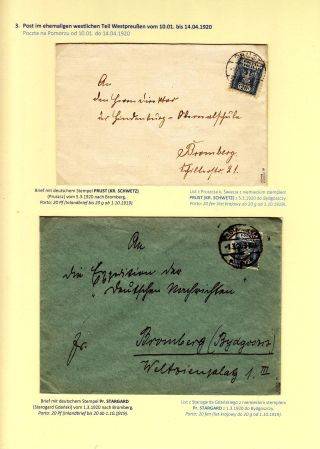 3. Post im ehemaligen westlichen Teil Westpreußen vom 10.01. bis 14.04.1920
Poczta na Pomorzu od 10.01. do 14.04.1920
An
den Herrn Direktor
der Hindenburg-Oberrealschule
Bromberg
Schillerstr. 21.
Brief mit deutschem Stempel PRUST (KR. SCHWETZ)
(Pruszcz) vom 5.3.1920 nach Bromberg.
Porto: 20 Pf (Inlandbrief bis 20 g ab 1.10.1919)
List z Pruszcza k. Świecia z niemieckim stemplem
PRUST (KR. SCHWETZ) z 5.3.1920 do Bydgoszczy.
Porto: 20 fen (list krajowy do 20 g od 1.10.1919).
An
die Expedition der
"Deutschen Nachrichten"
Fr.
Bromberg (Bydgoszcz)
Weltzienplatz 1. III
Brief mit deutschem Stempel Pr. STARGARD
(Starogard Gdański) vom 1.3.1920 nach Bromberg.
Porto: 20 Pf (Inlandbrief bis 20 g ab 1.10.1919).
List z Starogarda Gdańskiego z niemieckim stemplem
Pr. STARGARD z 1.3.1920 do Bydgoszczy.
Porto: 20 fen (list krajowy do 20 g od 1.10.1919).